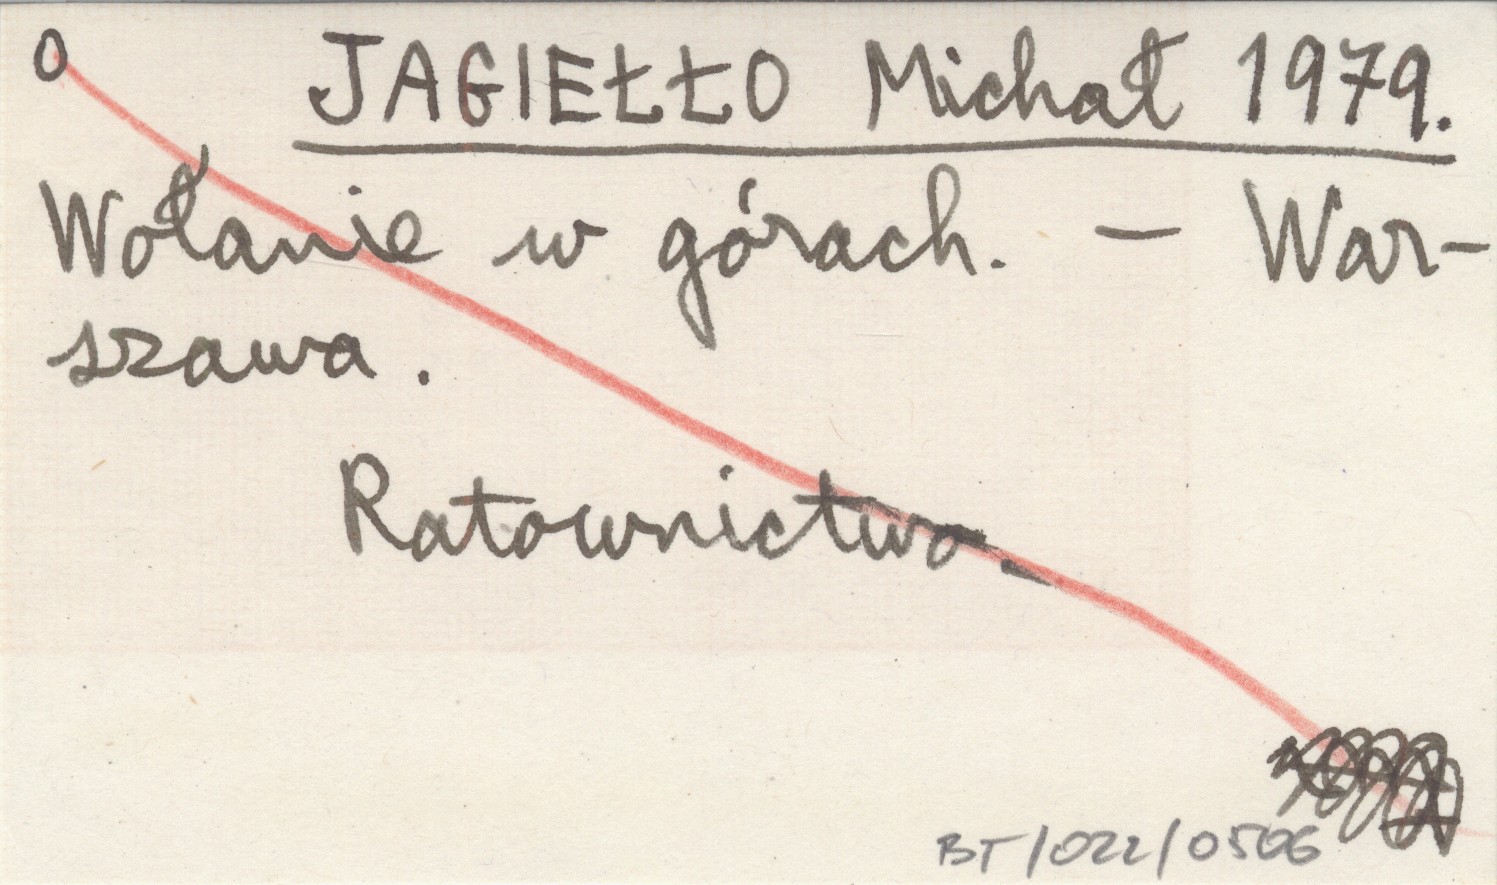 0
JAGIEŁŁO Michał 1979.
Wołanie w górach. – War-
szawa.
Ratownictwo.
BT/022/0506